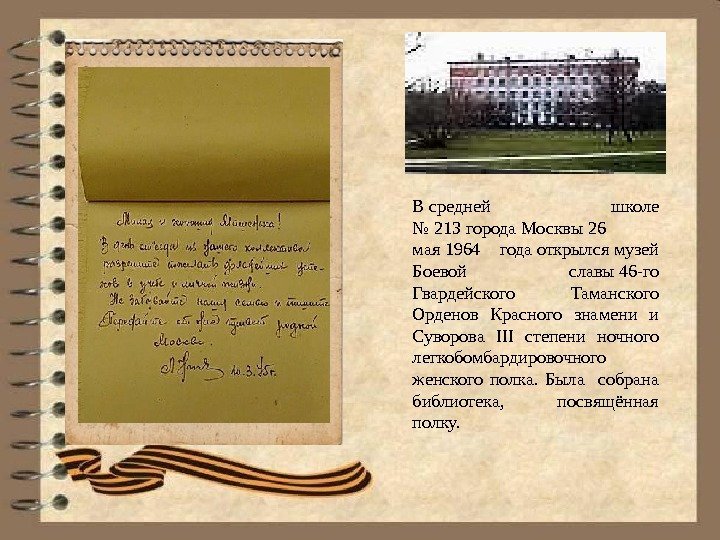 Милая и хорошая Машенька!
В день отъезда из Вашего коллектива
разрешите пожелать дальнейших успе-
хов в учёбе и личной жизни.
Не забывайте нашу семью и пишите
Передайте от меня привет родной
Москве.
10.3.75г.
В средней школе
№ 213 города Москвы 26
мая 1964 года открылся музей
Боевой славы 46-го
Гвардейского Таманского
Орденов Красного знамени и
Суворова III степени ночного
легкобомбардировочного
женского полка. Была собрана
библиотека, посвящённая
полку.